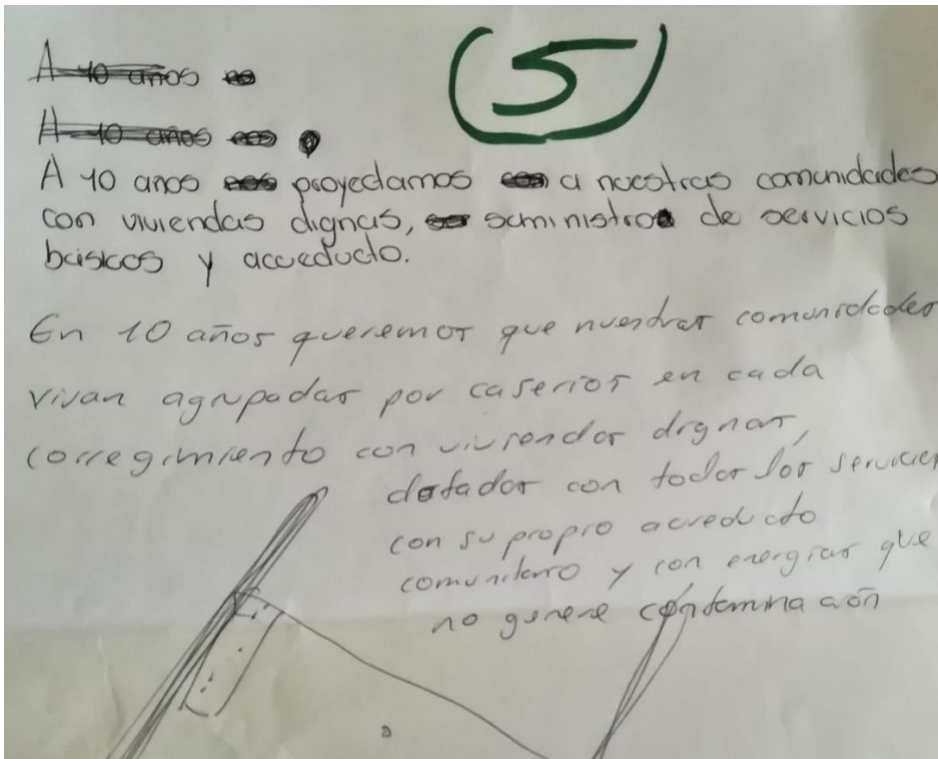 (5)
A 10 años
A 10 años
A 10 anos proyectamos a nuestras comunidades
con viviendas dignas, suministro de servicios
básicos y acueducto.
En 10 años queremos que nuestras comunidades
vivan agrupadas por caserios en cada
corregimiento con viviendas dignas,
dotadas con todos los servicios
con su propio acueducto
comunitario y con energias que
no genere contaminación